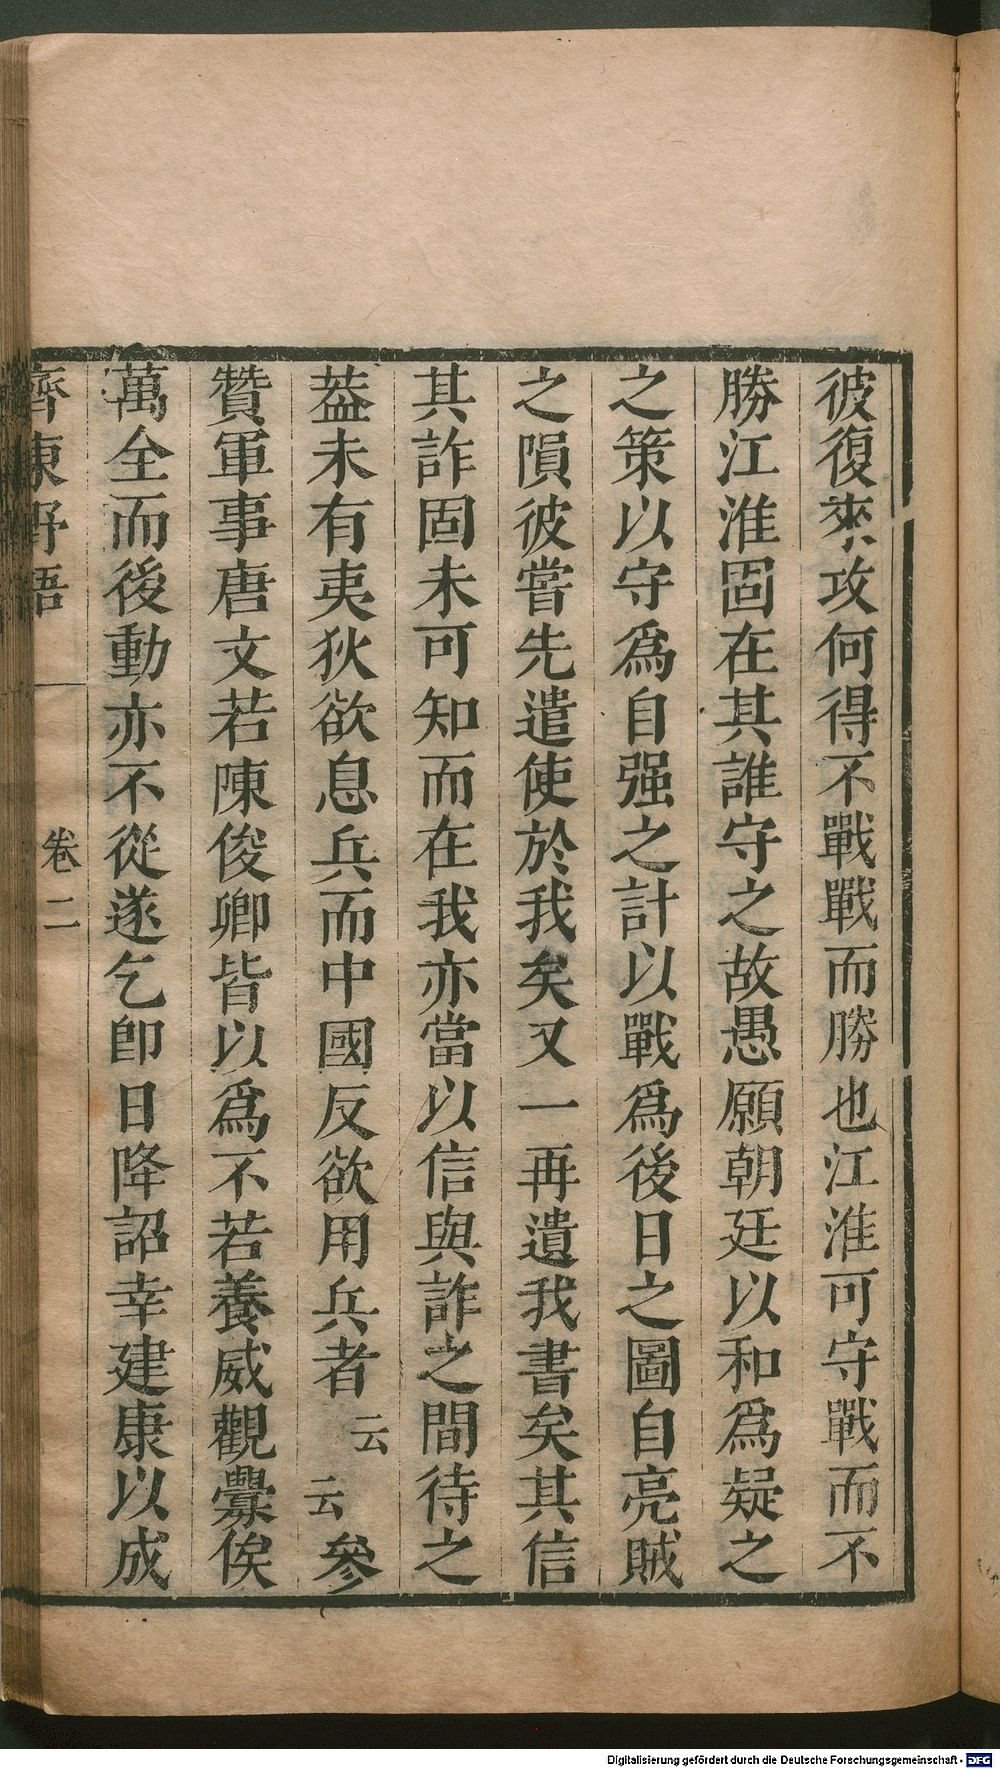 彼復來攻何得不戰戰而勝也江淮可守戰而不
勝江淮固在其誰守之故愚願朝廷以和爲疑之
之策以守爲自强之計以戰爲後日之圖自亮賊
之隕彼嘗先遣使於我矣又一再遺我書矣其信
其詐固未可知而在我亦當以信與詐之間待之
葢未有夷狄欲息兵而中國反欲用兵者云云參
贊軍事唐文若陳俊卿皆以爲不若養威觀釁俟
萬全而後動亦不從遂乞卽日降詔幸建康以成
齊東野語 卷二
Digitalisierung gefördert durch die Deutsche Forschungsgemeinschaft - DFG